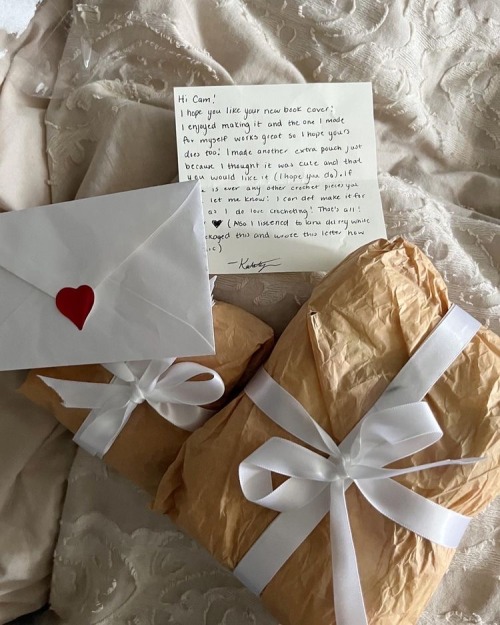 Hi Cam!
I hope you like your new book cover!
I enjoyed making it and the one I made
for myself works great so I hope yours
does too! I made another extra pouch just
because I thought it was cute and that
you would like it (I hope you do). If
is ever any other crochet pieces you
let me know! I can def make it for
as I do love crocheting! That's all!
♥ (Also I listened to lana del rey while
this and wrote this letter how